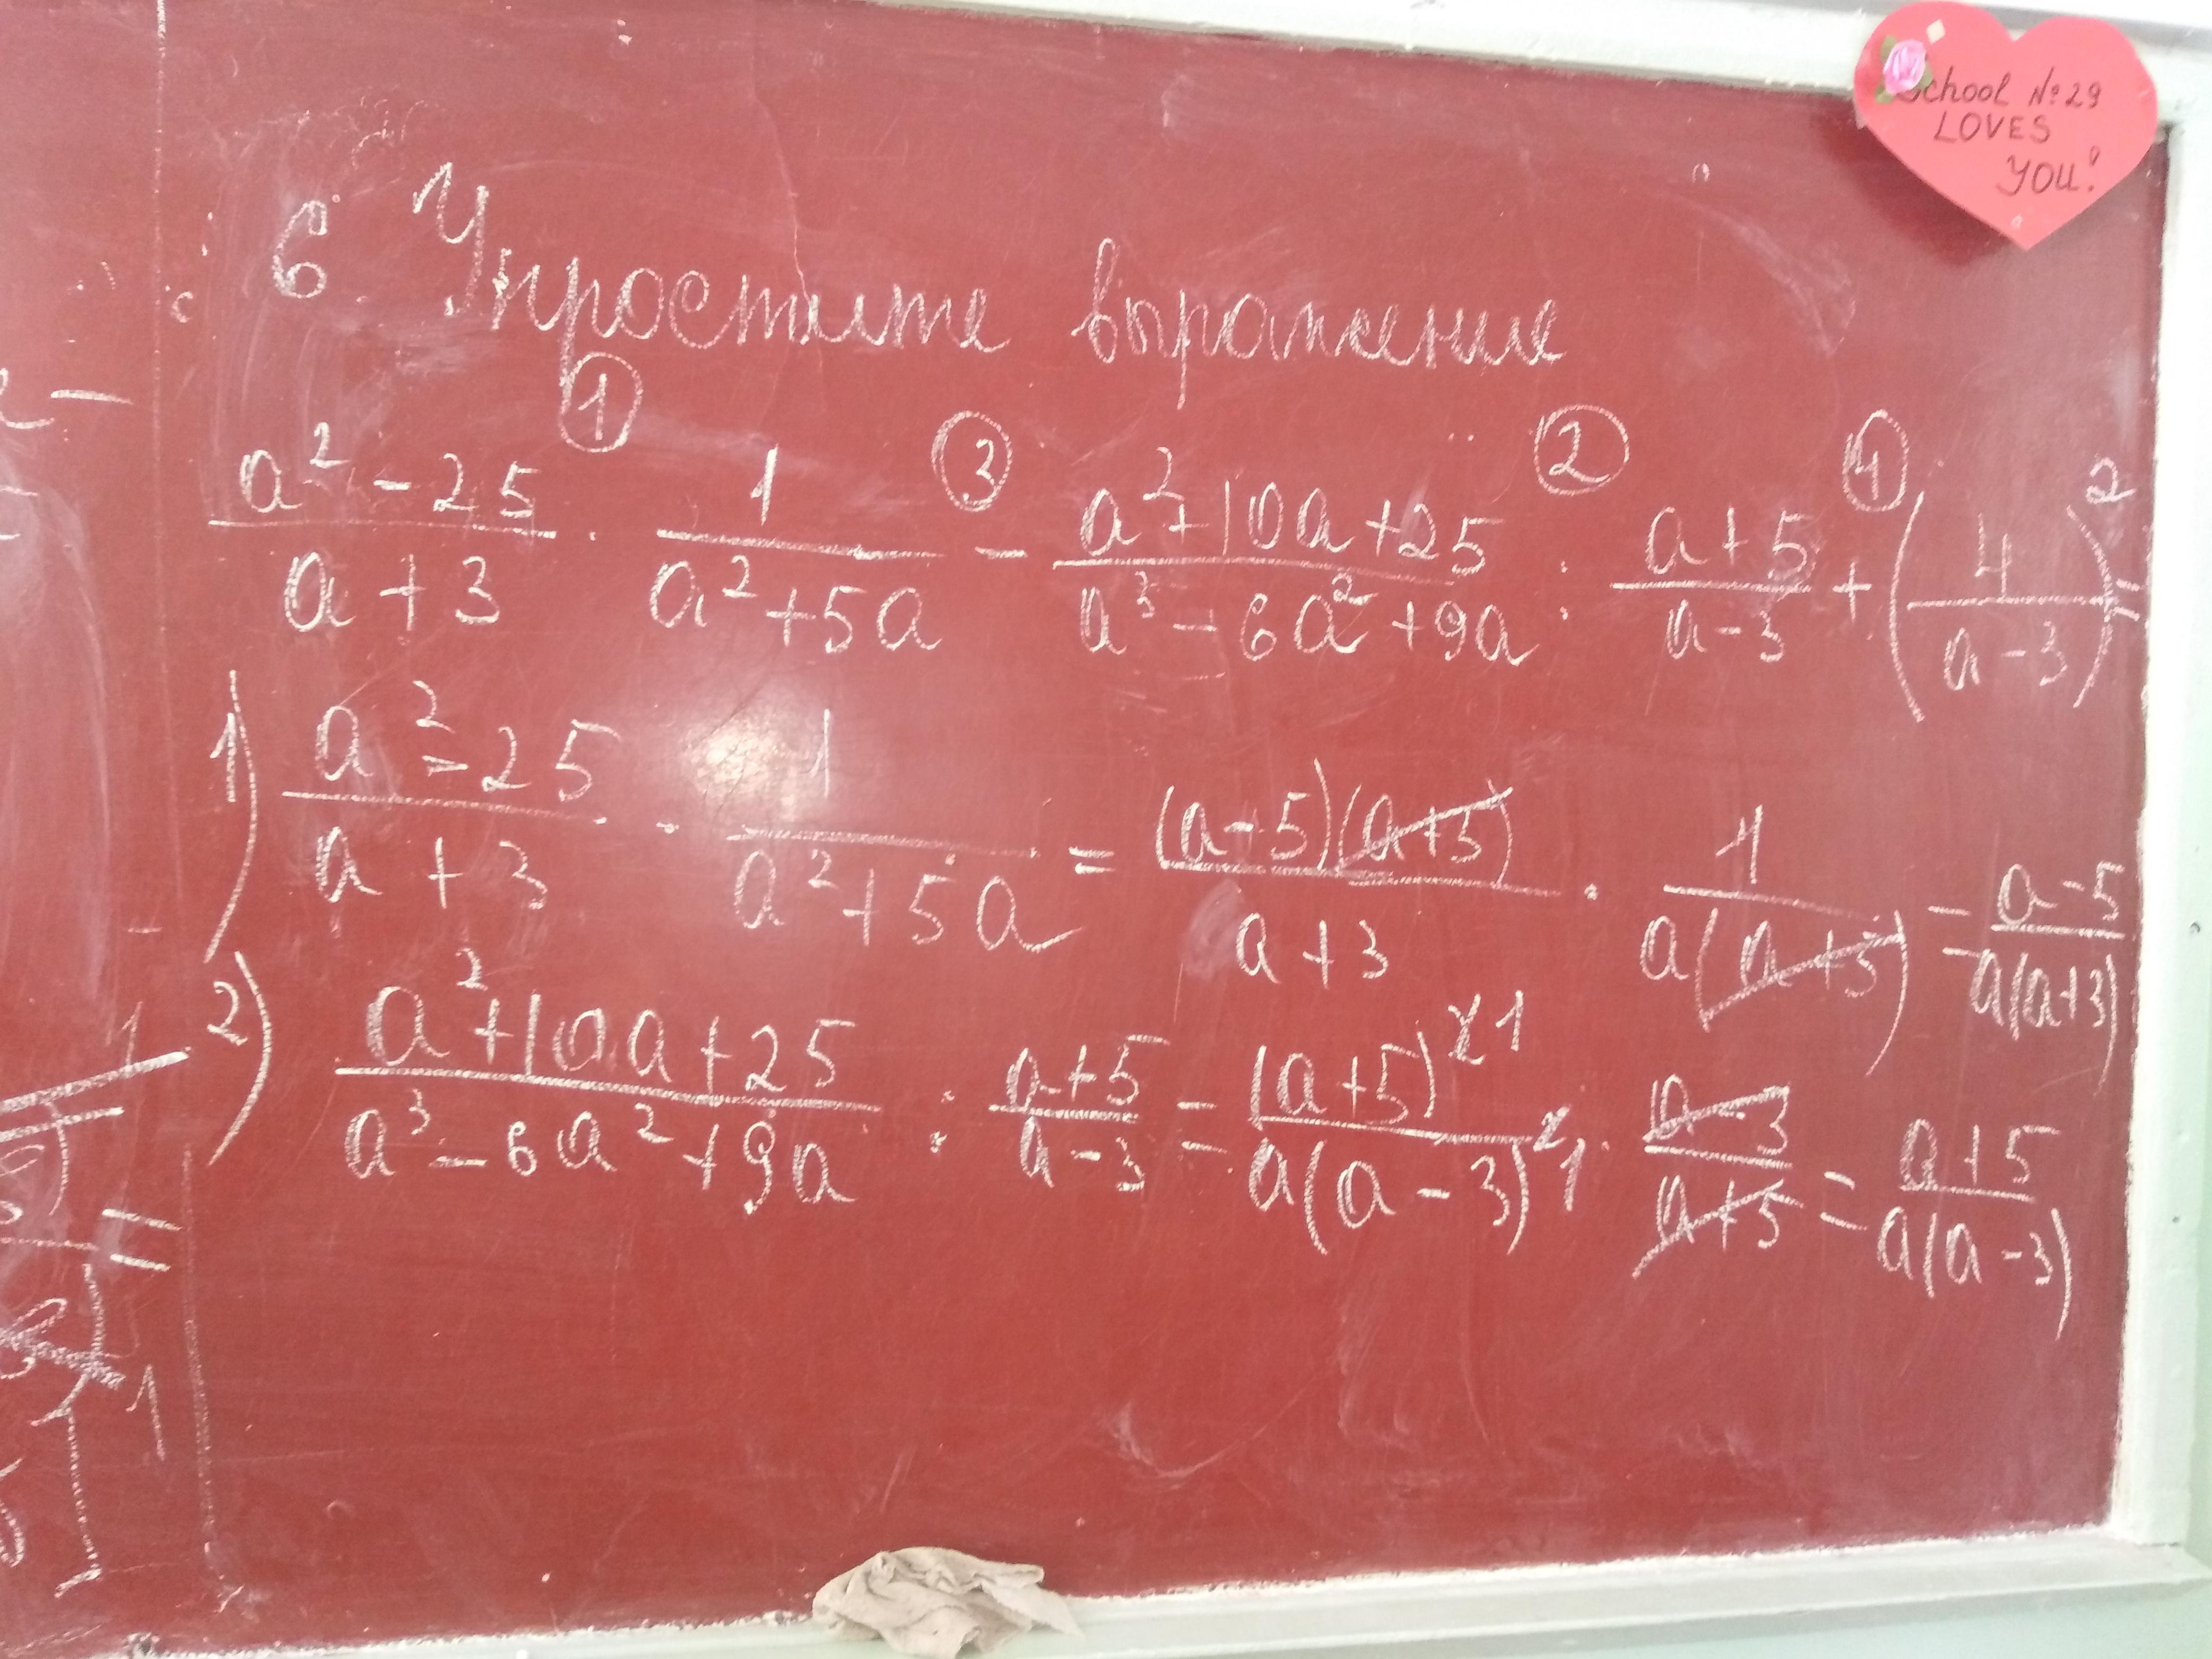 School №29
LOVES
YOU!
6. Упростите выражение
① ③ ② ④
(a² - 25)/(a + 3) · 1/(a² + 5a) - (a² + 10a + 25)/(a³ - 6a² + 9a) : (a + 5)/(a - 3) + (4/(a - 3))² =
1) (a² - 25)/(a + 3) · 1/(a² + 5a) = (a - 5)(a + 5)/(a + 3) · 1/(a(a + 5)) = (a - 5)/(a(a + 3))
2) (a² + 10a + 25)/(a³ - 6a² + 9a) : (a + 5)/(a - 3) = (a + 5)² ¹/(a(a - 3)² ¹) · (a - 3)/(a + 5) = (a + 5)/(a(a - 3))